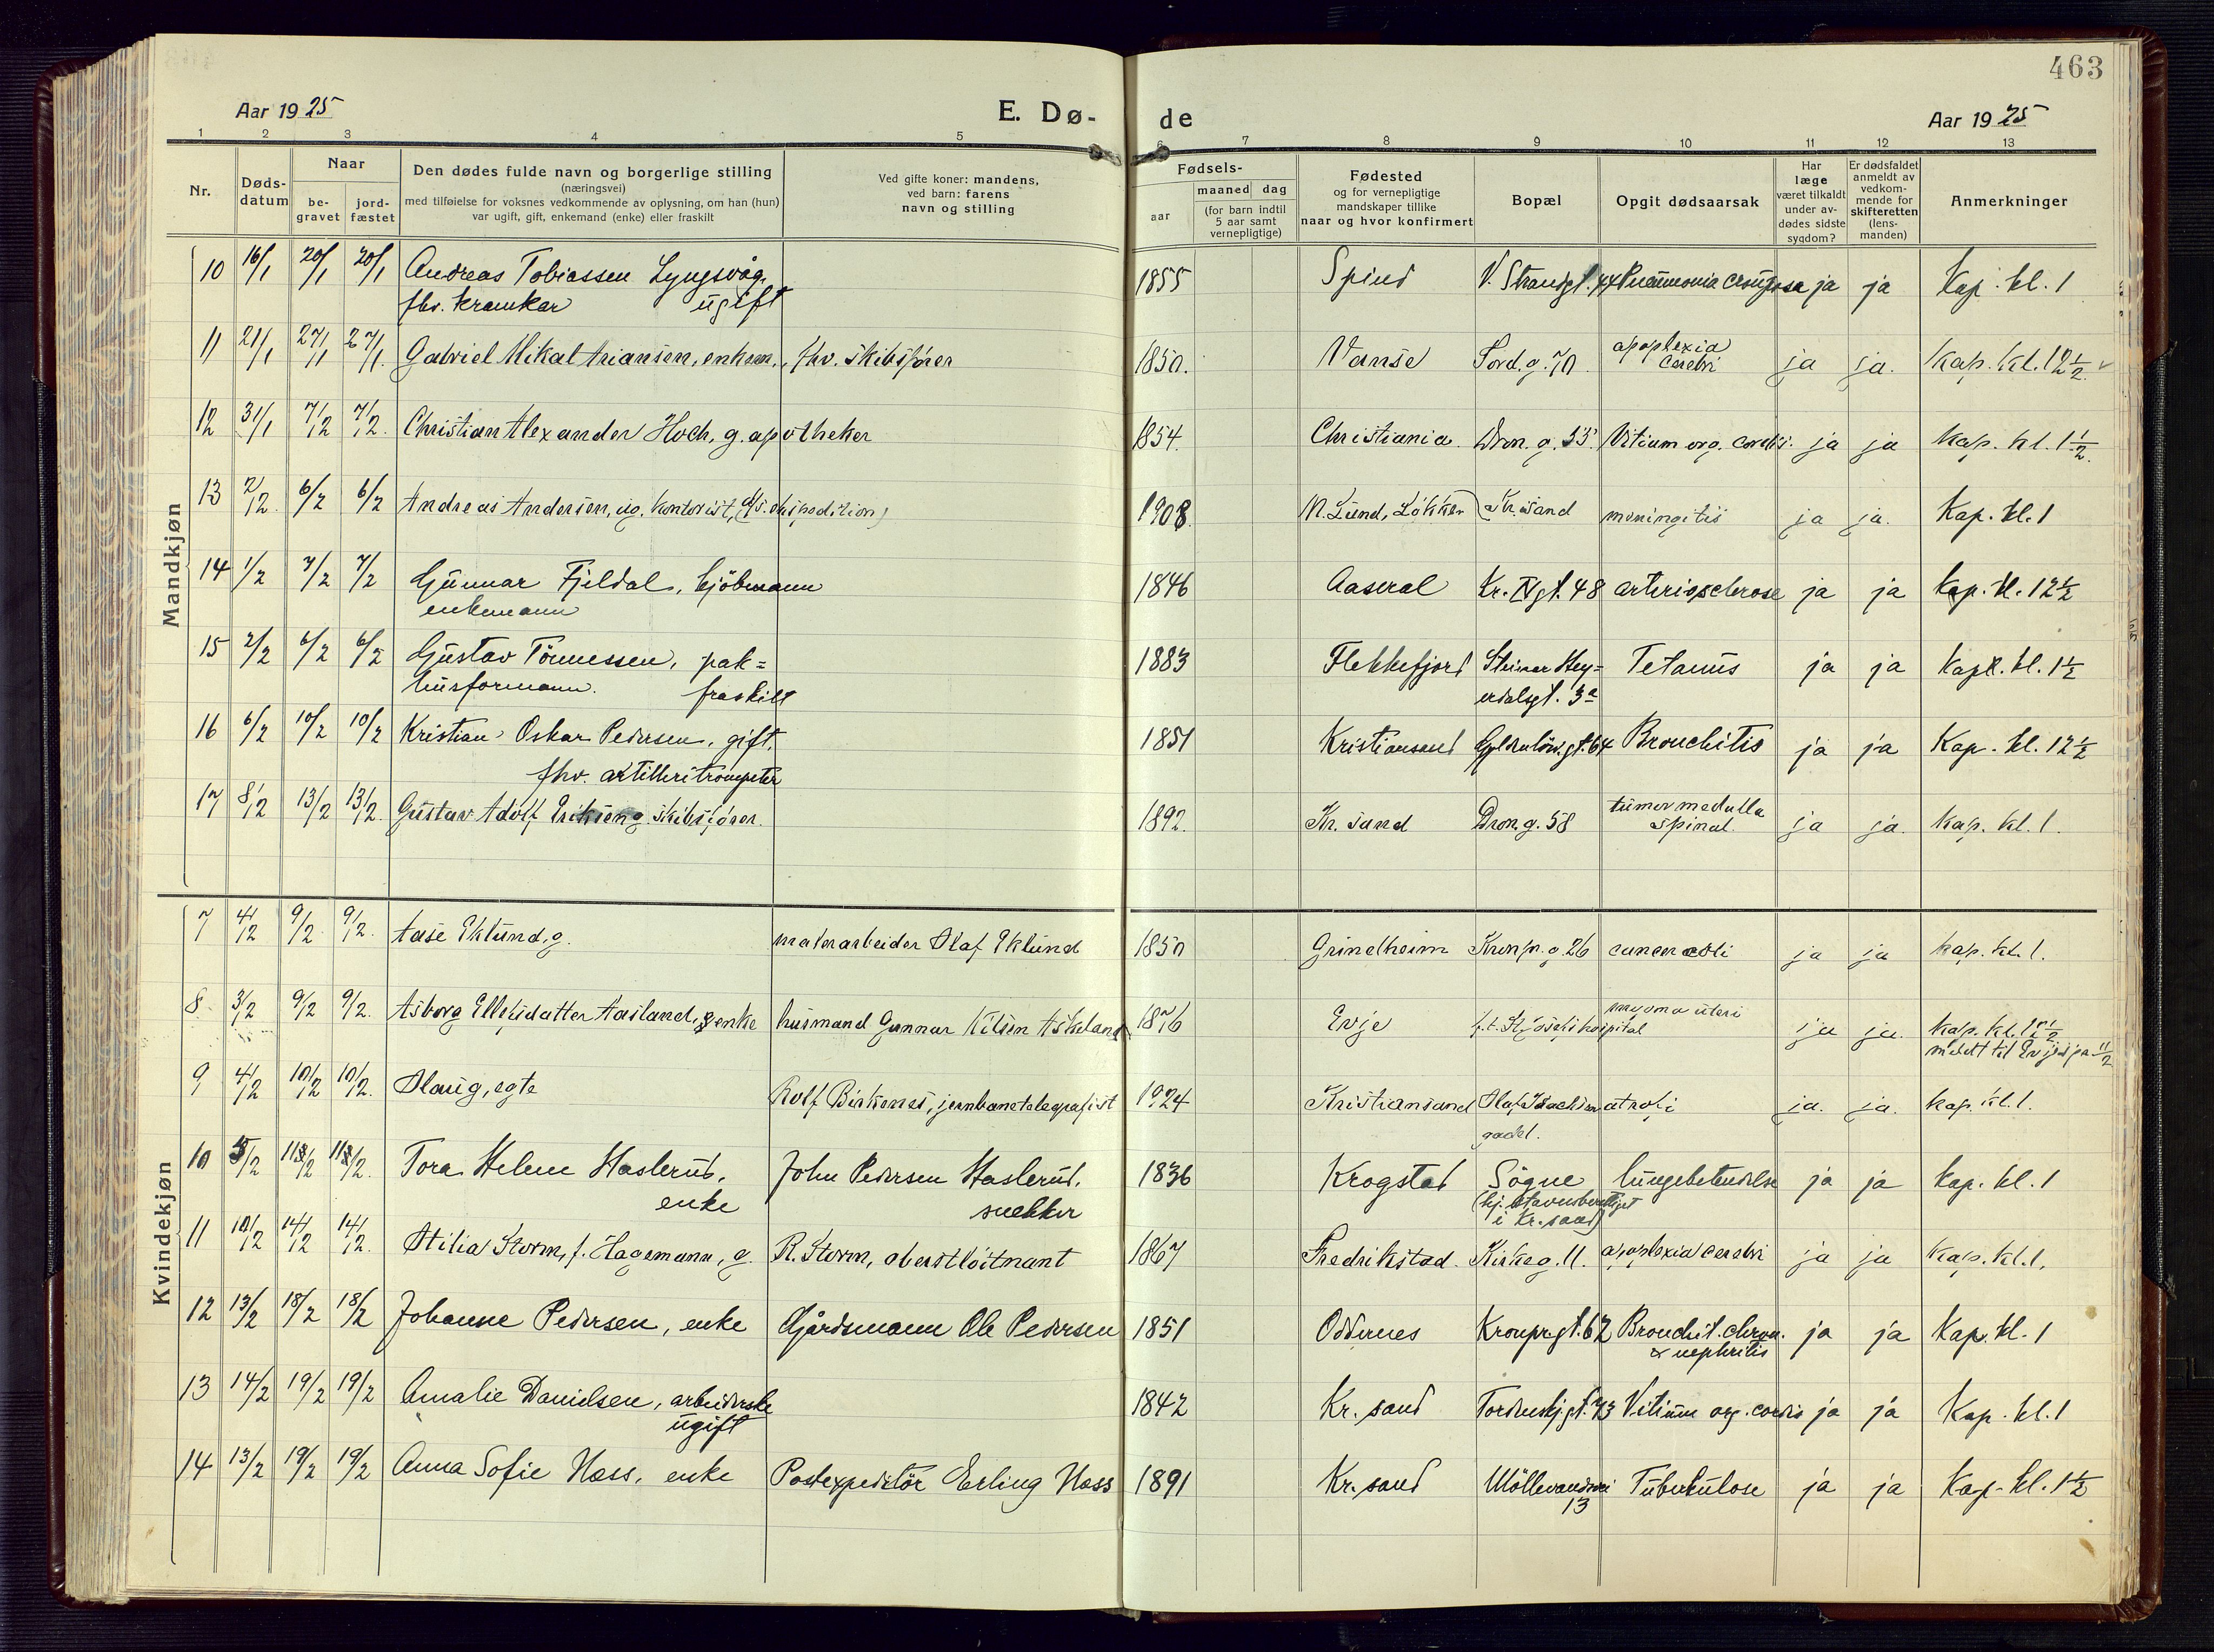 463
Aar 1925
E. Dø-
de
Aar 1925
1 2 3 4 5 6 7 8 9 10 11 12 13
Nr.
Døds-
datum
Naar
be-
gravet
jord-
fæstet
Den dødes fulde navn og borgerlige stilling
(næringsvei)
med tilføielse for voksnes vedkommende av oplysning, om han (hun)
var ugift, gift, enkemand (enke) eller fraskilt
Ved gifte koner: mandens,
ved barn: farens
navn og stilling
Fødsels-
aar
maaned dag
(for barn indtil
5 aar samt
vernepligtige)
Fødested
og for vernepligtige
mandskaper tillike
naar og hvor konfirmert
Bopæl
Opgit dødsaarsak
Har
læge
været tilkaldt
under av-
dødes sidste
sygdom?
Er dødsfaldet
anmeldt av
vedkom-
mende for
skifteretten
(lens-
manden)
Anmerkninger
Mandkjøn
10 16/1 20/1 20/1 Andreas Tobiassen Lyngsvåg, 1855 Spind V. Strandgt. 44 Pneumonia crouposa ja ja Kap. kl. 1
fhv. kramkar ugift
11 21/1 27/1 27/1. Gabriel Mikal Ariansen, enkem., fhv. skibsfører 1850. Vanse Tord. g. 70 apoplexia ja ja. Kap. kl. 12½.
cerebri
12 31/1 7/2 7/2. Christian Alexander Hoch, g. apotheker 1854. Christiania. Dron. g. 53. Vitium org. cordis. ja ja Kap. kl. 1½.
13 2/2. 6/2 6/2 Andreas Andersen, ug. kontorist, ekspedition) 1908 N. Lund, Løkken Kr.sand meningitis ja ja. Kap. kl. 1
14 1/2 7/2 7/2 Gunnar Fjeldal, kjöbmann 1846 Aaseral Kr. IVgt. 48 arteriosclerose ja ja Kap. kl. 12½
enkemann
15 2/2 6/2 6/2 Gustav Tönnessen, pak= 1883 Flekkefjord Steinar Hey= Tetanus ja ja Kapl. kl. 1½
husformann. fraskilt erdalsgt. 3a
16 6/2 10/2 10/2 Kristian Oskar Pedersen, gift, 1851 Kristiansand Gyldenlövsgt. 64 Bronchitis ja ja Kap. kl. 12½
fhv. artilleritrompeter
17 8/2 13/2 13/2. Gustav Adolf Eriksen g. skibsfører. 1892. Kr. sand Dron. g. 58 tumor medulla ja ja. Kap. kl. 1.
spinal.
Kvindekjøn
7 4/2 9/2 9/2. Aase Eklund, g. malerarbeider Olaf Eklund 1850 Grindheim Kronpr. g. 26 cancer coli ja ja Kap. kl. 1.
8 3/2 9/2 9/2. Asborg Ellefsdatter Aasland, enke husmand Gunnar Nilsen Askeland 1876 Evje f. t. St. Josefs hospital myoma uteri ja ja. Kap. kl. 12½
meldt til Evje
9 4/2 10/2 10/2. Olaug, egte Rolf Birkenes, jernbanetelegrafist 1924 Kristiansand Olaf Isachsen atrofi ja. ja. Kap. kl. 1.
gade 1.
10 5/2 Tora Helene Haslerud, John Pedersen Haslerud, 1836 Krogstad Sögne lungebetendelse ja ja Kap. kl. 1
enke snekker (hj. stavnsberettiget
i Kr.sand)
11 10/2 14/2 14/2. Otilia Storm, f. Hagemann, g. R. Storm, oberstløitnant 1867 Fredrikstad. Kirkeg. 11. apoplexia cerebri ja ja Kap. kl. 1.
12 13/2 18/2 18/2 Johanne Pedersen, enke Gårdsmann Ole Pedersen 1851 Oddernes Kronprgt. 62 Bronchit. chron. ja ja Kap. kl. 1
& nephritis
13 14/2 19/2 19/2 Amalie Danielsen, arbeiderske 1842 Kr. sand Tordenskj.gt. 73 Vitium org. cordis ja ja Kap. kl. 1
ugift
14 13/2 19/2 19/2 Anna Sofie Hass, enke Postexpeditör Erling Hass 1891 Kr. sand Möllevandsvei Tuberkulose ja ja Kap. kl. 1½
13